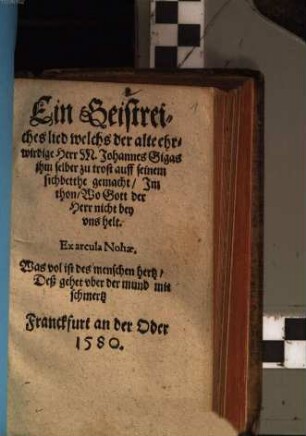 Ein Geistrei-
ches lied welchs der alte ehr-
wirdige Herr M. Johannes Gigas
ihm selber zu trost auff seinem
sichbetthe gemacht / Im
thon / Wo Gott der
Herr nicht bey
vns helt.
Ex arcula Nohæ.
Was vol ist des menschen hertz /
Deß gehet vber der mund mit
schmertz
Franckfurt an der Oder
1580.